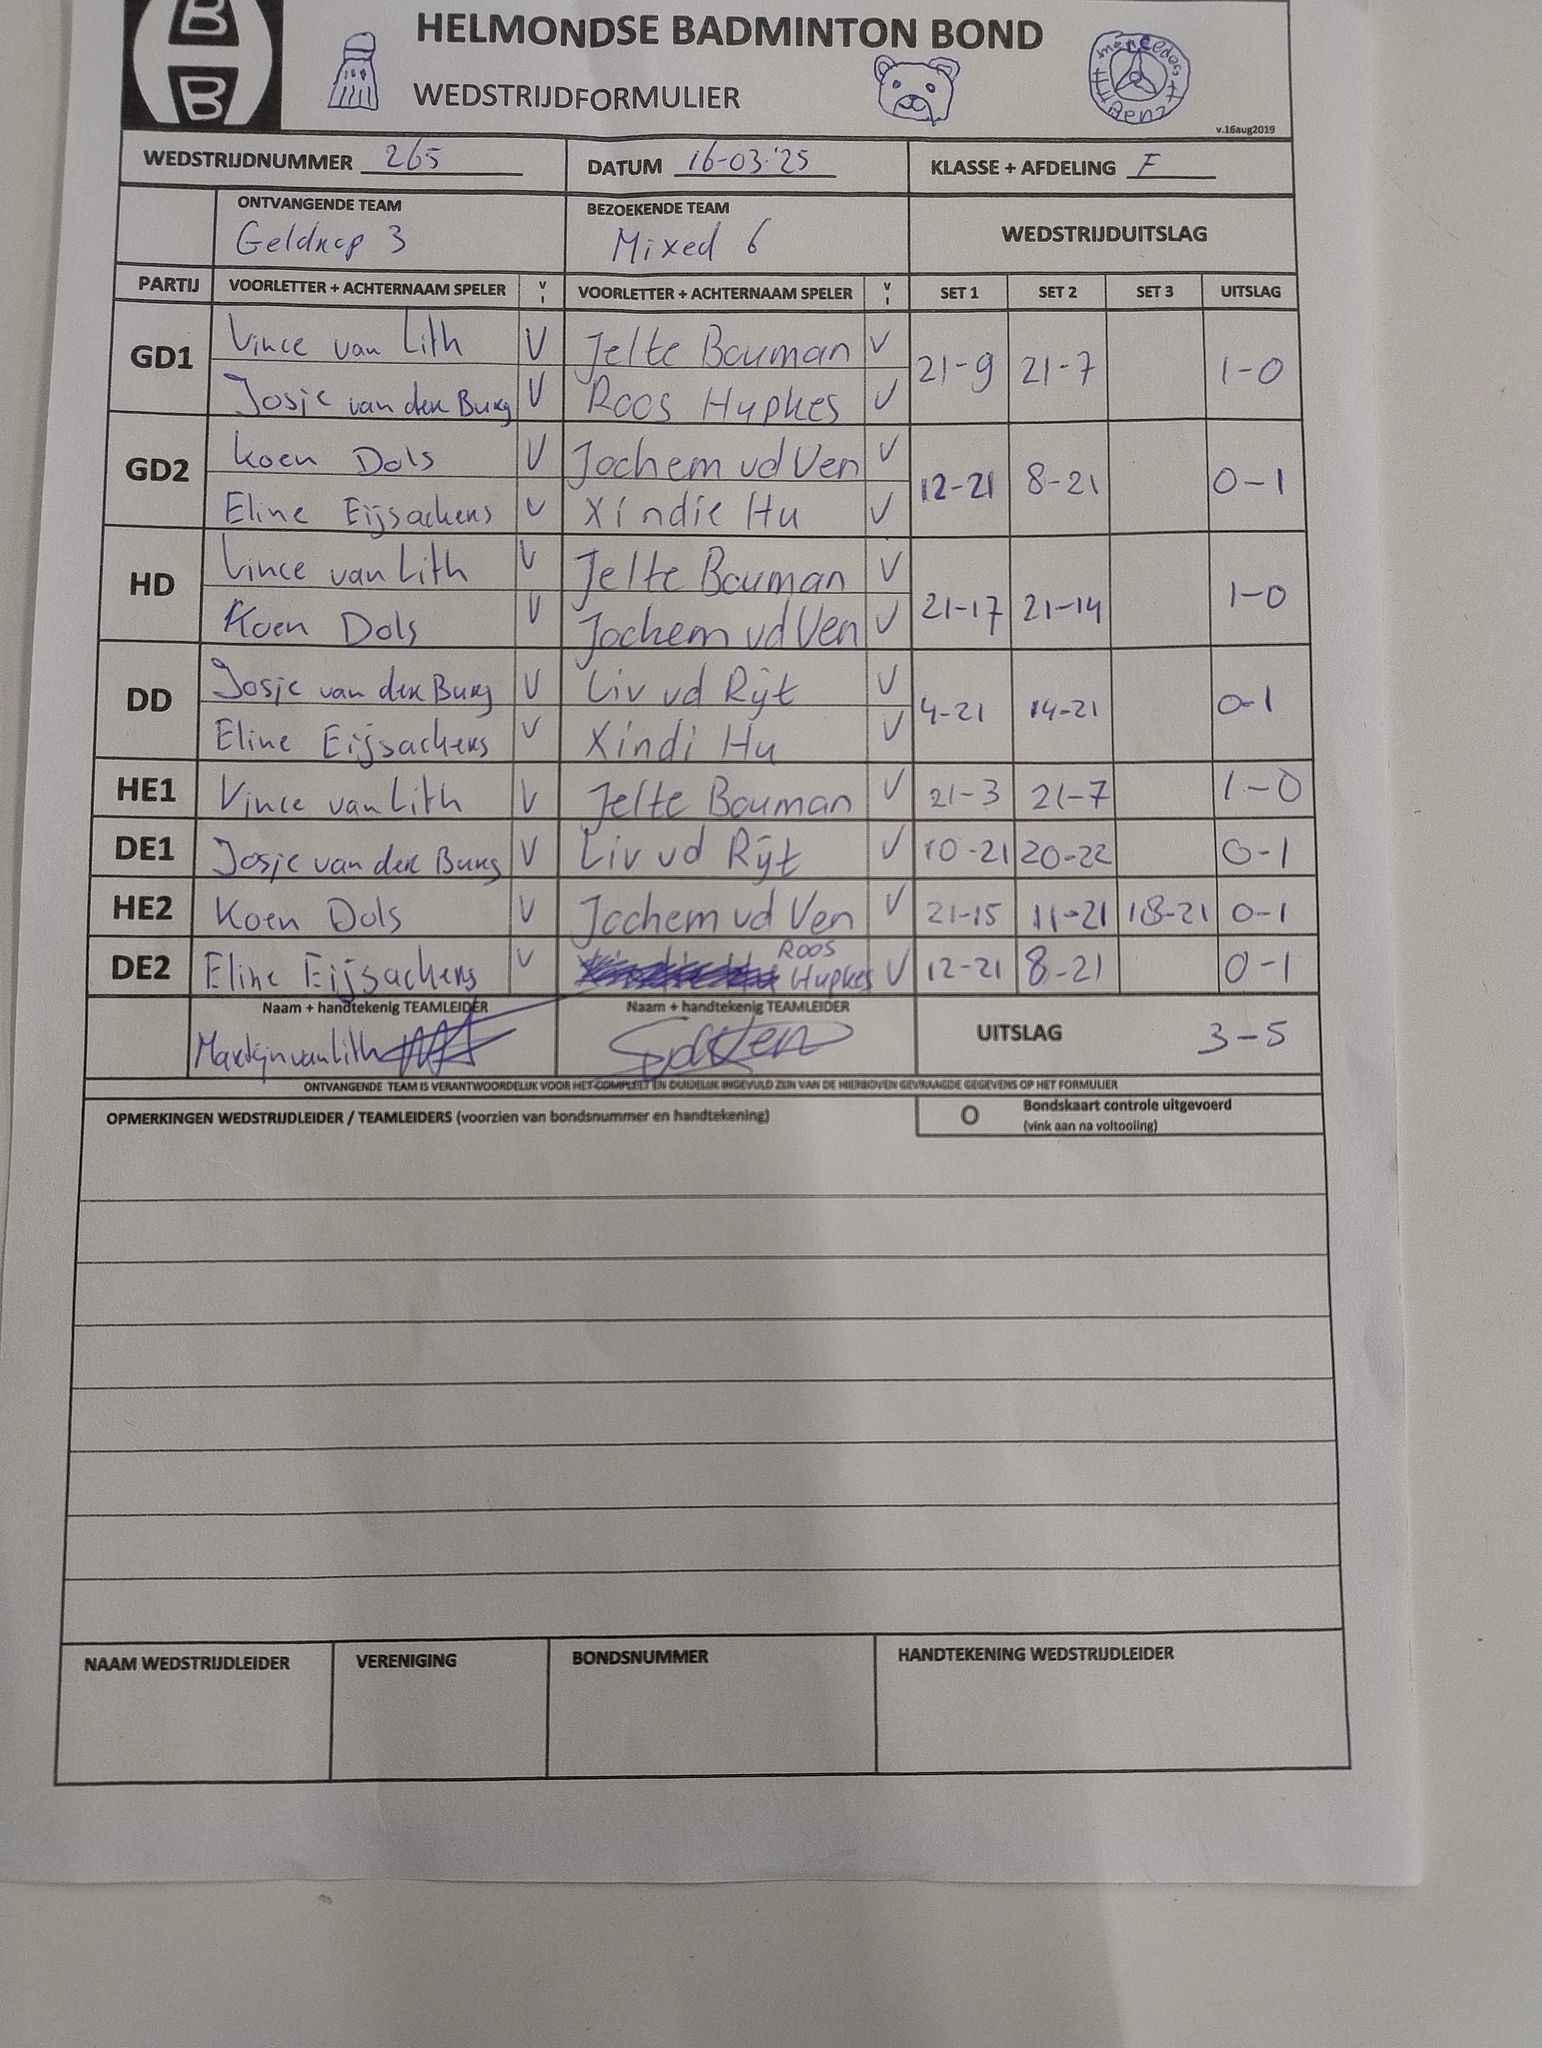 B
B
HELMONDSE BADMINTON BOND
WEDSTRIJDFORMULIER
mercedes Benz
v.16aug2019
WEDSTRIJDNUMMER 265 DATUM 16-03-'25 KLASSE + AFDELING F
ONTVANGENDE TEAM BEZOEKENDE TEAM
Geldrop 3 Mixed 6 WEDSTRIJDUITSLAG
PARTIJ VOORLETTER + ACHTERNAAM SPELER V VOORLETTER + ACHTERNAAM SPELER V SET 1 SET 2 SET 3 UITSLAG
GD1 Vince van Lith V Jelte Bouman V 21-9 21-7 1-0
Josje van der Burg V Roos Hupkes V
GD2 Koen Dols V Jochem vd Ven V 12-21 8-21 0-1
Eline Eijsackers V Xindie Hu V
HD Vince van Lith V Jelte Bouman V 21-17 21-14 1-0
Koen Dols V Jochem vd Ven V
DD Josje van der Burg V Liv vd Rijt V 4-21 14-21 0-1
Eline Eijsackers V Xindi Hu V
HE1 Vince van Lith V Jelte Bouman V 21-3 21-7 1-0
DE1 Josje van der Burg V Liv vd Rijt V 10-21 20-22 0-1
HE2 Koen Dols V Jochem vd Ven V 21-15 11-21 18-21 0-1
DE2 Eline Eijsackers V Roos Hupkes V 12-21 8-21 0-1
Naam + handtekenig TEAMLEIDER Naam + handtekenig TEAMLEIDER
Martijn van Lith UITSLAG 3-5
ONTVANGENDE TEAM IS VERANTWOORDELIJK VOOR HET COMPLEET EN DUIDELIJK INGEVULD ZIJN VAN DE HIERBOVEN GEVRAAGDE GEGEVENS OP HET FORMULIER
OPMERKINGEN WEDSTRIJDLEIDER / TEAMLEIDERS (voorzien van bondsnummer en handtekening) O Bondskaart controle uitgevoerd
(vink aan na voltooiing)
NAAM WEDSTRIJDLEIDER VERENIGING BONDSNUMMER HANDTEKENING WEDSTRIJDLEIDER